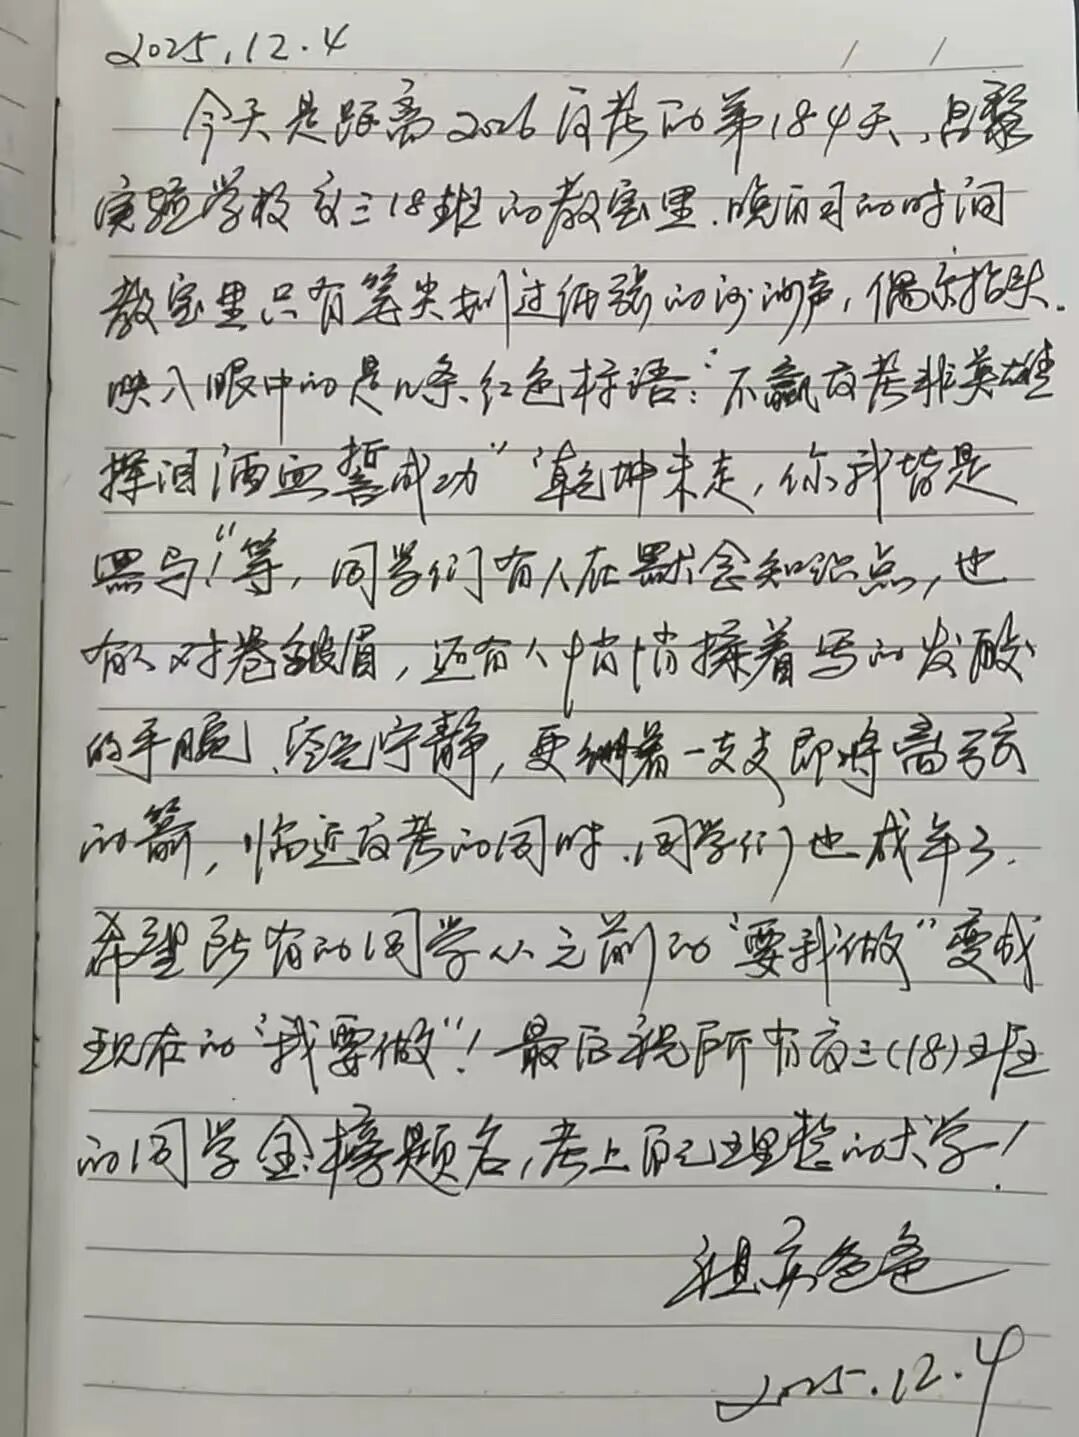 2025.12.4
今天是距离2026高考的第184天、昌黎
实验学校高三18班的教室里.晚自习的时间
教室里只有笔尖划过纸张的沙沙声,偶尔抬头.
映入眼中的是几条红色标语:"不赢高考非英雄
挥泪洒血誓成功""乾坤未定,你我皆是
黑马!"等,同学们有人在默念知识点,也
有人对卷皱眉,还有人悄悄揉着写的发酸
的手腕、空气宁静,更绷着一支支即将离弦
的箭,临近高考的同时.同学们也成年了.
希望所有的同学从之前的"要我做"变成
现在的"我要做"!最后祝所有高三(18)班
的同学金榜题名,考上自己理想的大学!
爸爸
2025.12.4